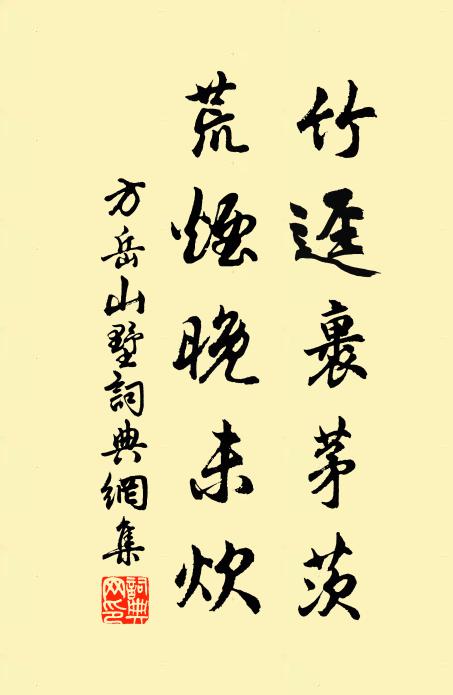 竹逕裹茅茨
荒煙晚未炊
方岳山墅詞典網集
詞典
网印